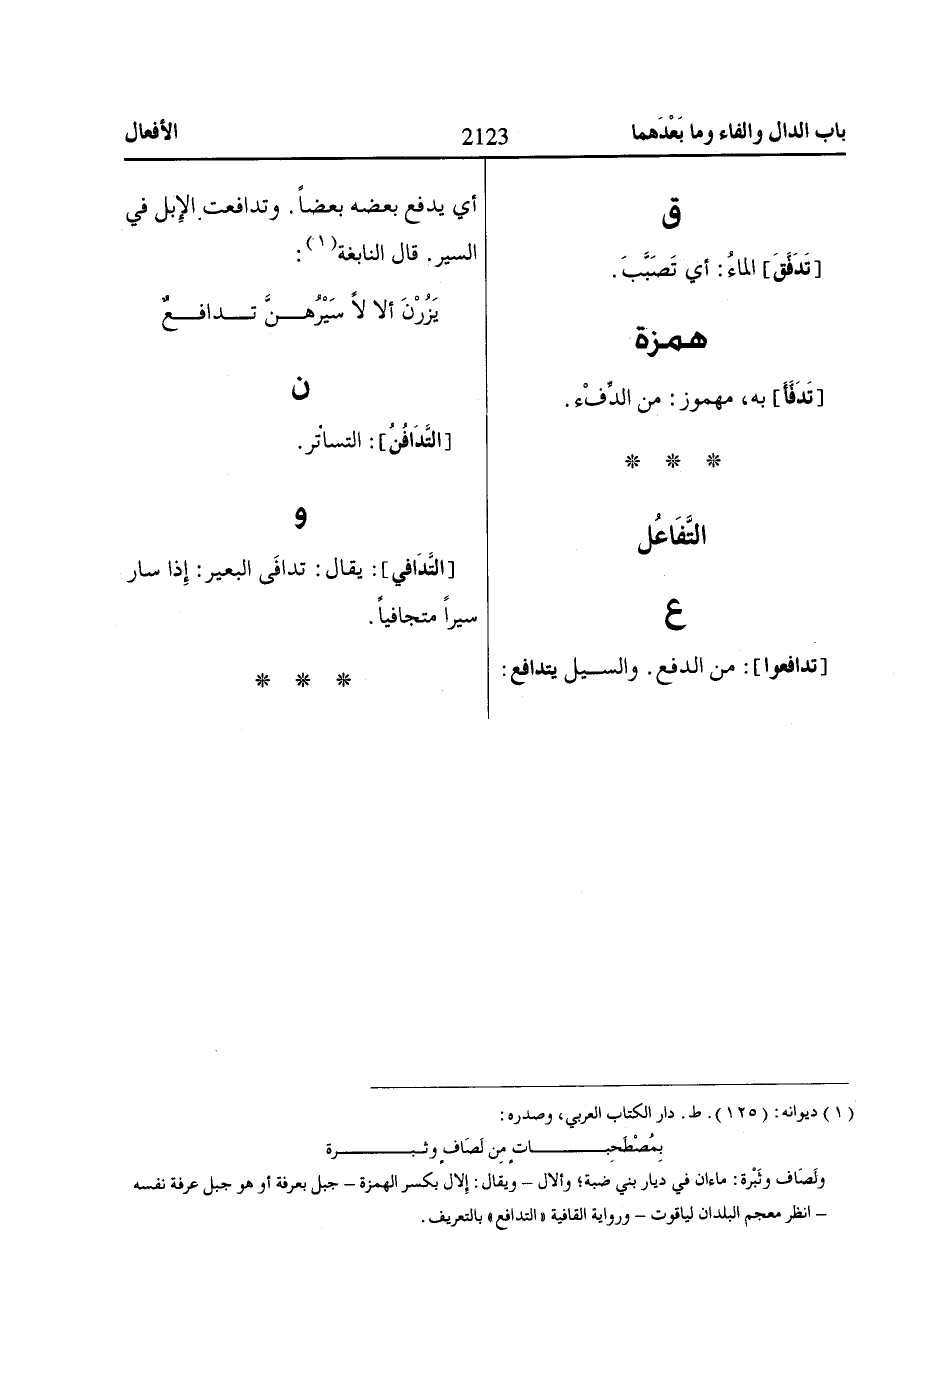 باب الدال والفاء وما بَعْدَهما
2123
الأفعال
ق
[تَدَفَّقَ] الماءُ: أي تَصَبَّبَ.
همزة
[تَدَفَّأَ] به، مهموز: من الدِّفْء.
* * *
التَّفَاعُل
ع
[تدافعوا]: من الدفع. والسيل يتدافع:
أي يدفع بعضه بعضاً. وتدافعت الإبل في
السير. قال النابغة(١):
يَزُرْنَ ألا لاً سَيْرُهنَّ تدافعٌ
ن
[التَّدَافُنُ]: التساتُر.
و
[التَّدَافي]: يقال: تدافَى البعير: إذا سار
سيراً متجافياً.
* * *
(١) ديوانه: (١٢٥). ط. دار الكتاب العربي، وصدره:
بمُصْطَحِبات مِن لَصَافٍ وثبرة
ولَصَاف وثَبْرة: ماءان في ديار بني ضبة؛ وألال – ويقال: إلال بكسر الهمزة – جبل بعرفة أو هو جبل عرفة نفسه
– انظر معجم البلدان لياقوت – ورواية القافية «التدافع» بالتعريف.